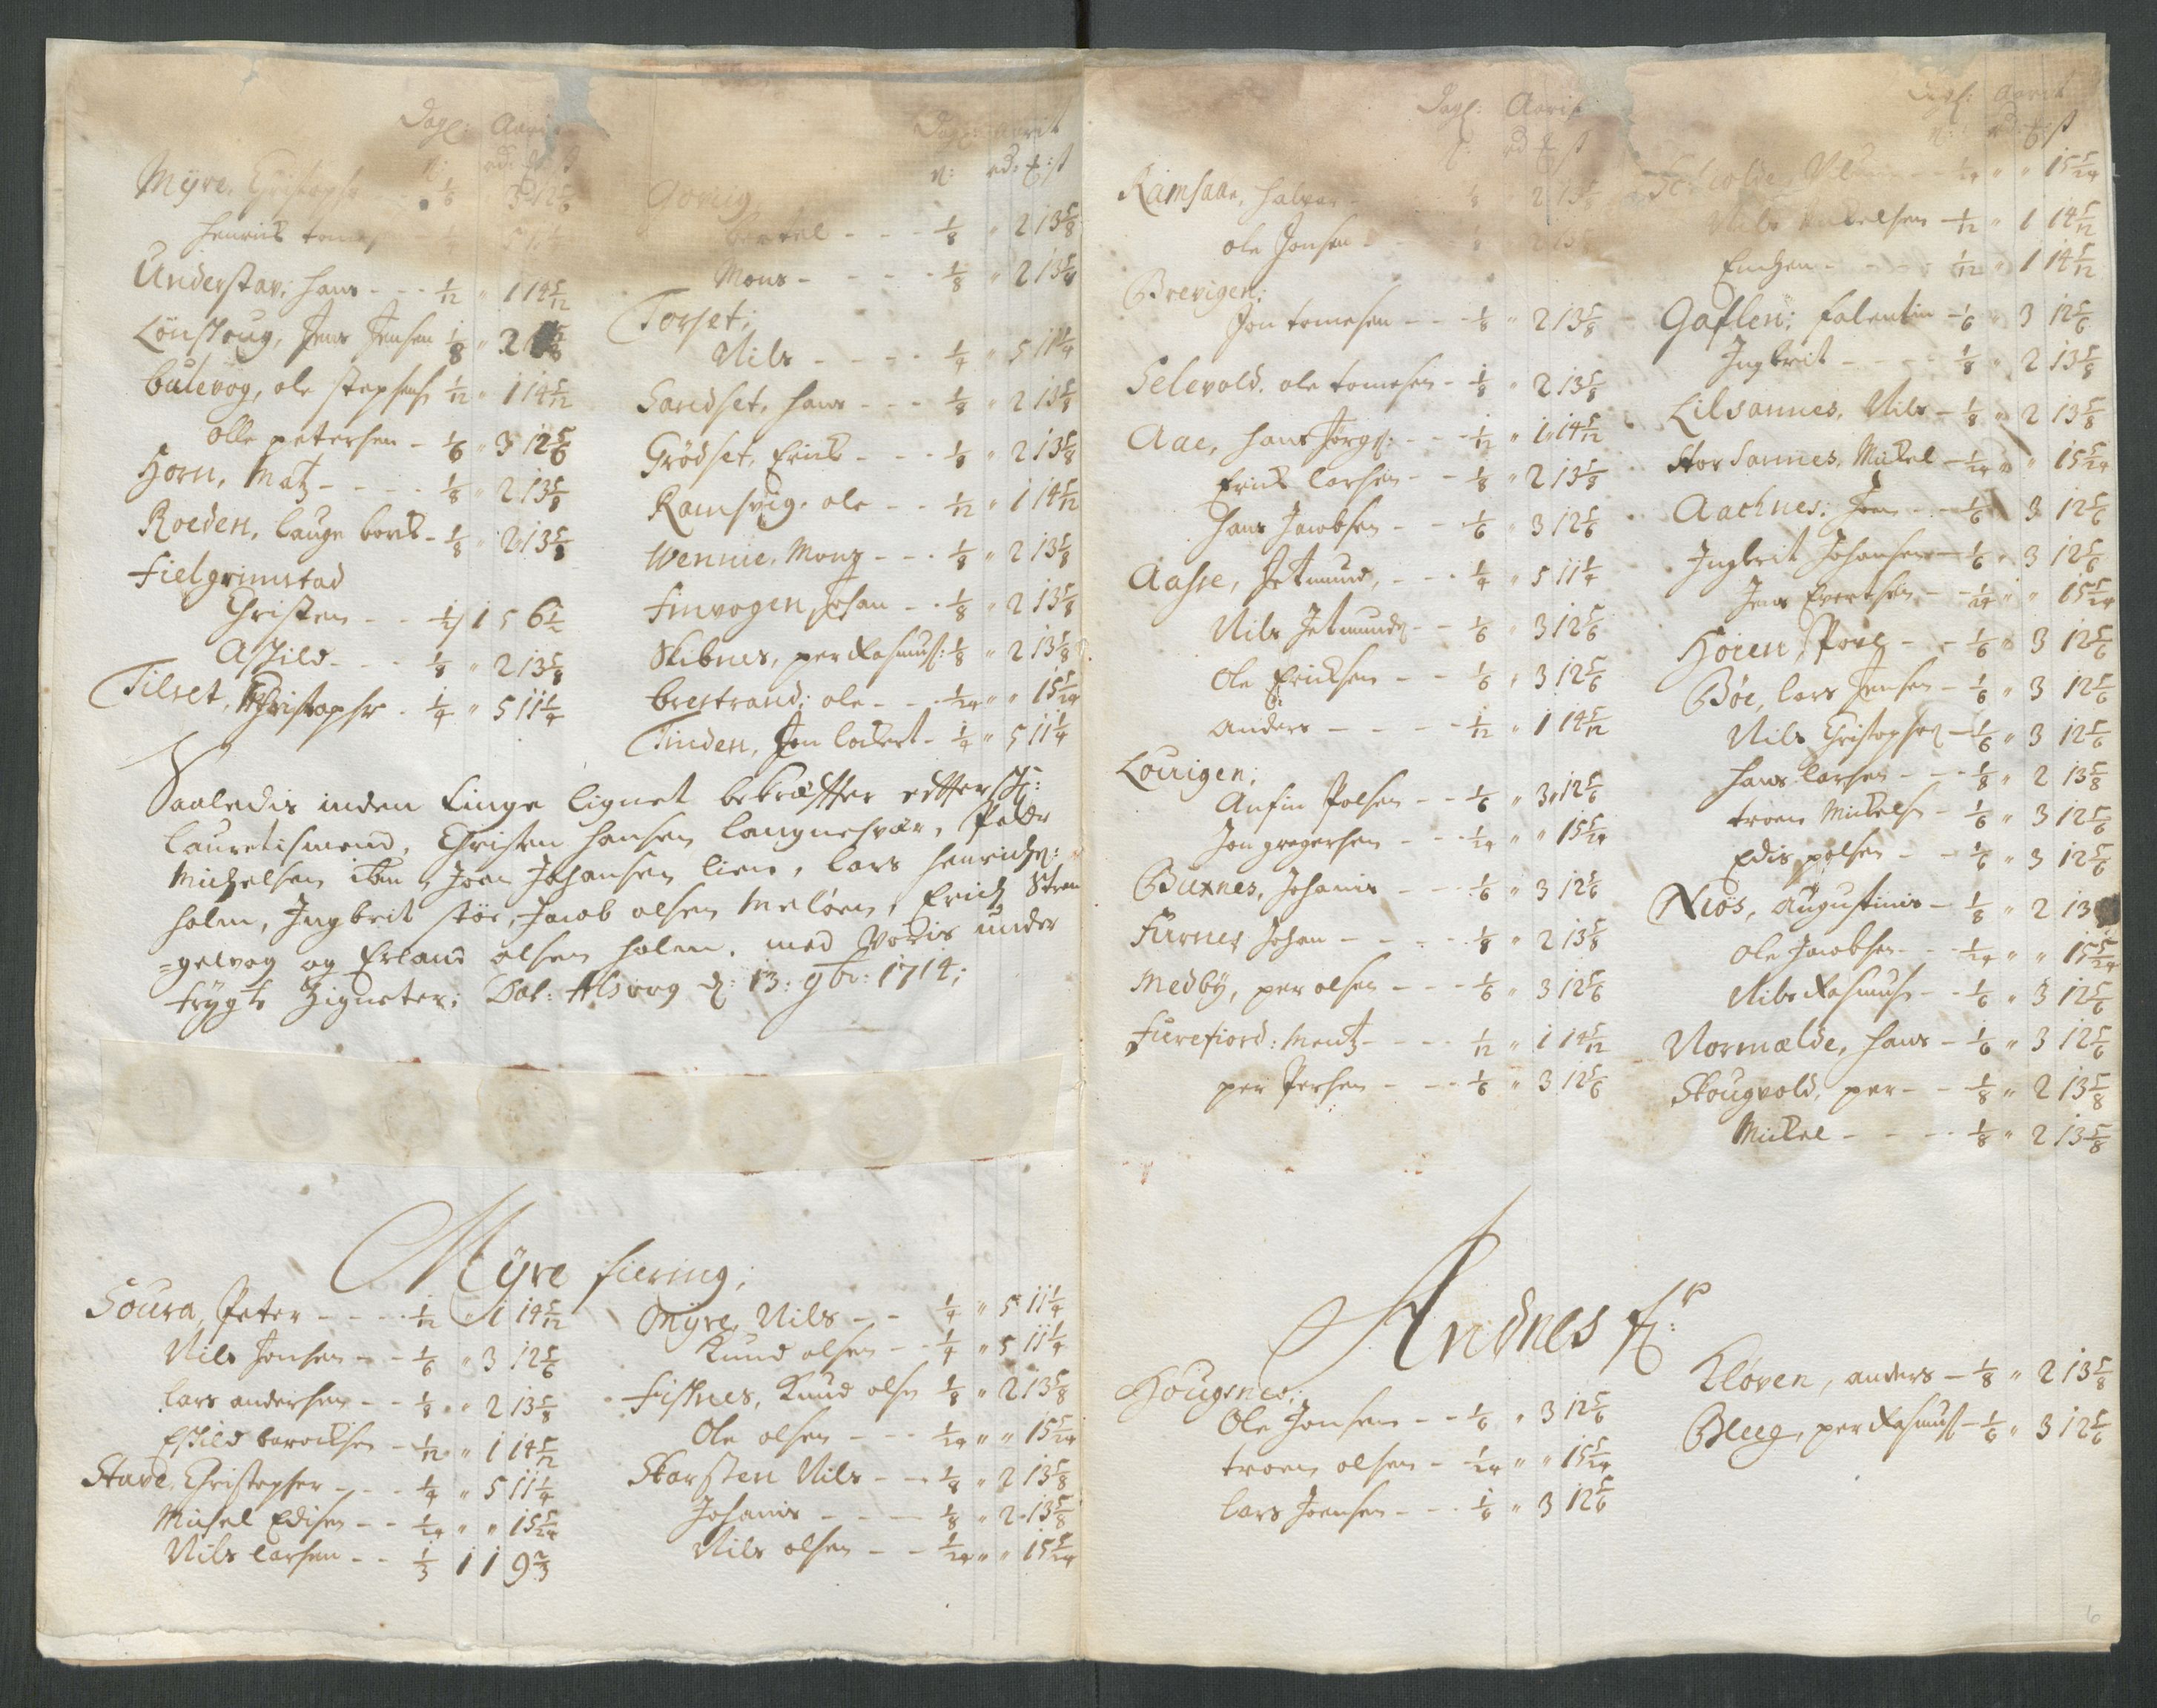 Dagl: Aarl
Myre, Christopher 1/6 3 12 5/6
henrich
Understav, hans - - - 1/12 " 1 14 5/12
Lönskoug, Jens Jensen 1/8 " 2
bülevog, ole stephens 1/12 " 1 14 5/12
olle petersen - 1/6 " 3 12 5/6
Horn, Matz - - - - 1/8 " 2 13 5/8
Roeden, lauge bork - 1/8 " 2 13 5/8
Fielgrimstad
Christen - - 1/2 1 5 6 1/2
Askild - - - 1/8 " 2 13 5/8
Tilset, Christopher - 1/4 " 5 11 1/4
bertel - - - 1/8 " 2 13 5/8
Mons - - - - 1/8 " 2 13 5/8
Torset;
Nils - - - - 1/4 " 5 11 1/4
Sandset, hans - - - 1/8 " 2 13 5/8
Grödset, Erick - - - 1/8 " 2 13 5/8
Ramsvig, ole - - - 1/12 " 1 14 5/12
Wennie, Monz - - - 1/8 " 2 13 5/8
Finvogen, Johan - - 1/8 " 2 13 5/8
Skibnes, per Rasmuss: 1/8 " 2 13 5/8
brestrand; ole - - - 1/24 " " 15 5/24
Tinden, Jon lockert - 1/4 " 5 11 1/4
Saaledis inden tinge lignet bekræfter effterskr:
lauretismend, Christen hansen langnesvær, Peder
Michelsen ibm, Joen Johansen lien, lars henrichs:
holm, Ingbrit störe, Jacob olsen Meløen, Erich Stren
=gelvog og Erland olsen holm. med Voris under
trygte Zigneter; Dat: Alsvog d: 13: 9br: 1714;
Myre fiering;
Soura, Peter - - - - 1/12 " 1 14 5/12
Nils Jonsen - - 1/6 " 3 12 5/6
lars andersen - - 1/8 " 2 13 5/8
Eskild barocksen - 1/12 " 1 14 5/12
Stave, Christopher - - - 1/4 " 5 11 1/4
Michel Edisen - - 1/24 " " 15 5/24
Nils larsen - - 1/3 1 1 9 2/3
Myre, Nils - - 1/4 " 5 11 1/4
Knud olsen - - 1/4 " 5 11 1/4
Fisknes, Knud olsen 1/8 " 2 13 5/8
Ole olsen - - - 1/24 " " 15 5/24
Skarsten Nils - - 1/8 " 2 13 5/8
Johanis - - - - 1/8 " 2 13 5/8
Nils olsen - - 1/24 " " 15 5/24
Dagl: Aarl
Ramsaae, halvor 1/8 " 2 13 5/8
ole Jonsen - - 1/8 2 13 5/8
Brevigen;
Jon tomesen - - - 1/8 " 2 13 5/8
Selevold, ole tomesen - 1/8 " 2 13 5/8
Aae, hans Jörgs: - - - 1/12 " 1 14 5/12
Erick larsen - - 1/8 " 2 13 5/8
hans Jacobsen - - 1/6 " 3 12 5/6
Aasse, Jetmund, - - - 1/4 " 5 11 1/4
Nils Jetmunds - - 1/6 " 3 12 5/6
Ole Ericksen - - 1/6 " 3 12 5/6
anders - - - - 1/12 " 1 14 5/12
Lovigen;
Anfin Polsen - - 1/6 " 3 12 5/6
Jon gregersen - - - 1/24 " " 15 5/24
Buxnes, Johanis - - - 1/6 " 3 12 5/6
Fürnes Johan - - - - 1/8 " 2 13 5/8
Medby, per olsen - - - 1/6 " 3 12 5/6
Fürefiord: Mentz - - - - 1/12 " 1 14 5/12
per Persen - - - 1/6 " 3 12 5/6
1/24 " " 15 5/24
Nils Mickelsen 1/12 " 1 14 5/12
1/12 " 1 14 5/12
Gaflen; falentin - 1/6 " 3 12 5/6
Ingbrit - - - - 1/8 " 2 13 5/8
Lilsannes, Nils - 1/8 " 2 13 5/8
Stor Sannes, Mickel - 1/24 " " 15 5/24
Aachnes; Joen - - 1/6 " 3 12 5/6
Ingbrit Johansen - 1/6 " 3 12 5/6
Jens Evertsen - - 1/24 " " 15 5/24
Höien, Povl - - 1/6 " 3 12 5/6
Bøe, lars Jensen - 1/6 " 3 12 5/6
Nils Christophers - 1/6 " 3 12 5/6
hans larsen - - - 1/8 " 2 13 5/8
troen Mickelsen - 1/6 " 3 12 5/6
Edis polsen - - 1/6 " 3 12 5/6
Nöss, Augustinis - 1/8 " 2 13
Ole Jacobsen - - 1/24 " " 15 5/24
Nils Rasmuss - - 1/6 " 3 12 5/6
Normælde, hans - 1/6 " 3 12 5/6
Skougvold, per - - 1/8 " 2 13 5/8
Mickel - - - - 1/8 " 2 13 5/8
Andnes f:
Hougsnes;
Ole Jonsen - - 1/6 " 3 12 5/6
troen olsen - 1/24 " " 15 5/24
lars Joensen - - - 1/6 " 3 12 5/6
Kløven, anders - 1/8 " 2 13 5/8
Bleeg, per Rasmuss - 1/6 " 3 12 5/6
6